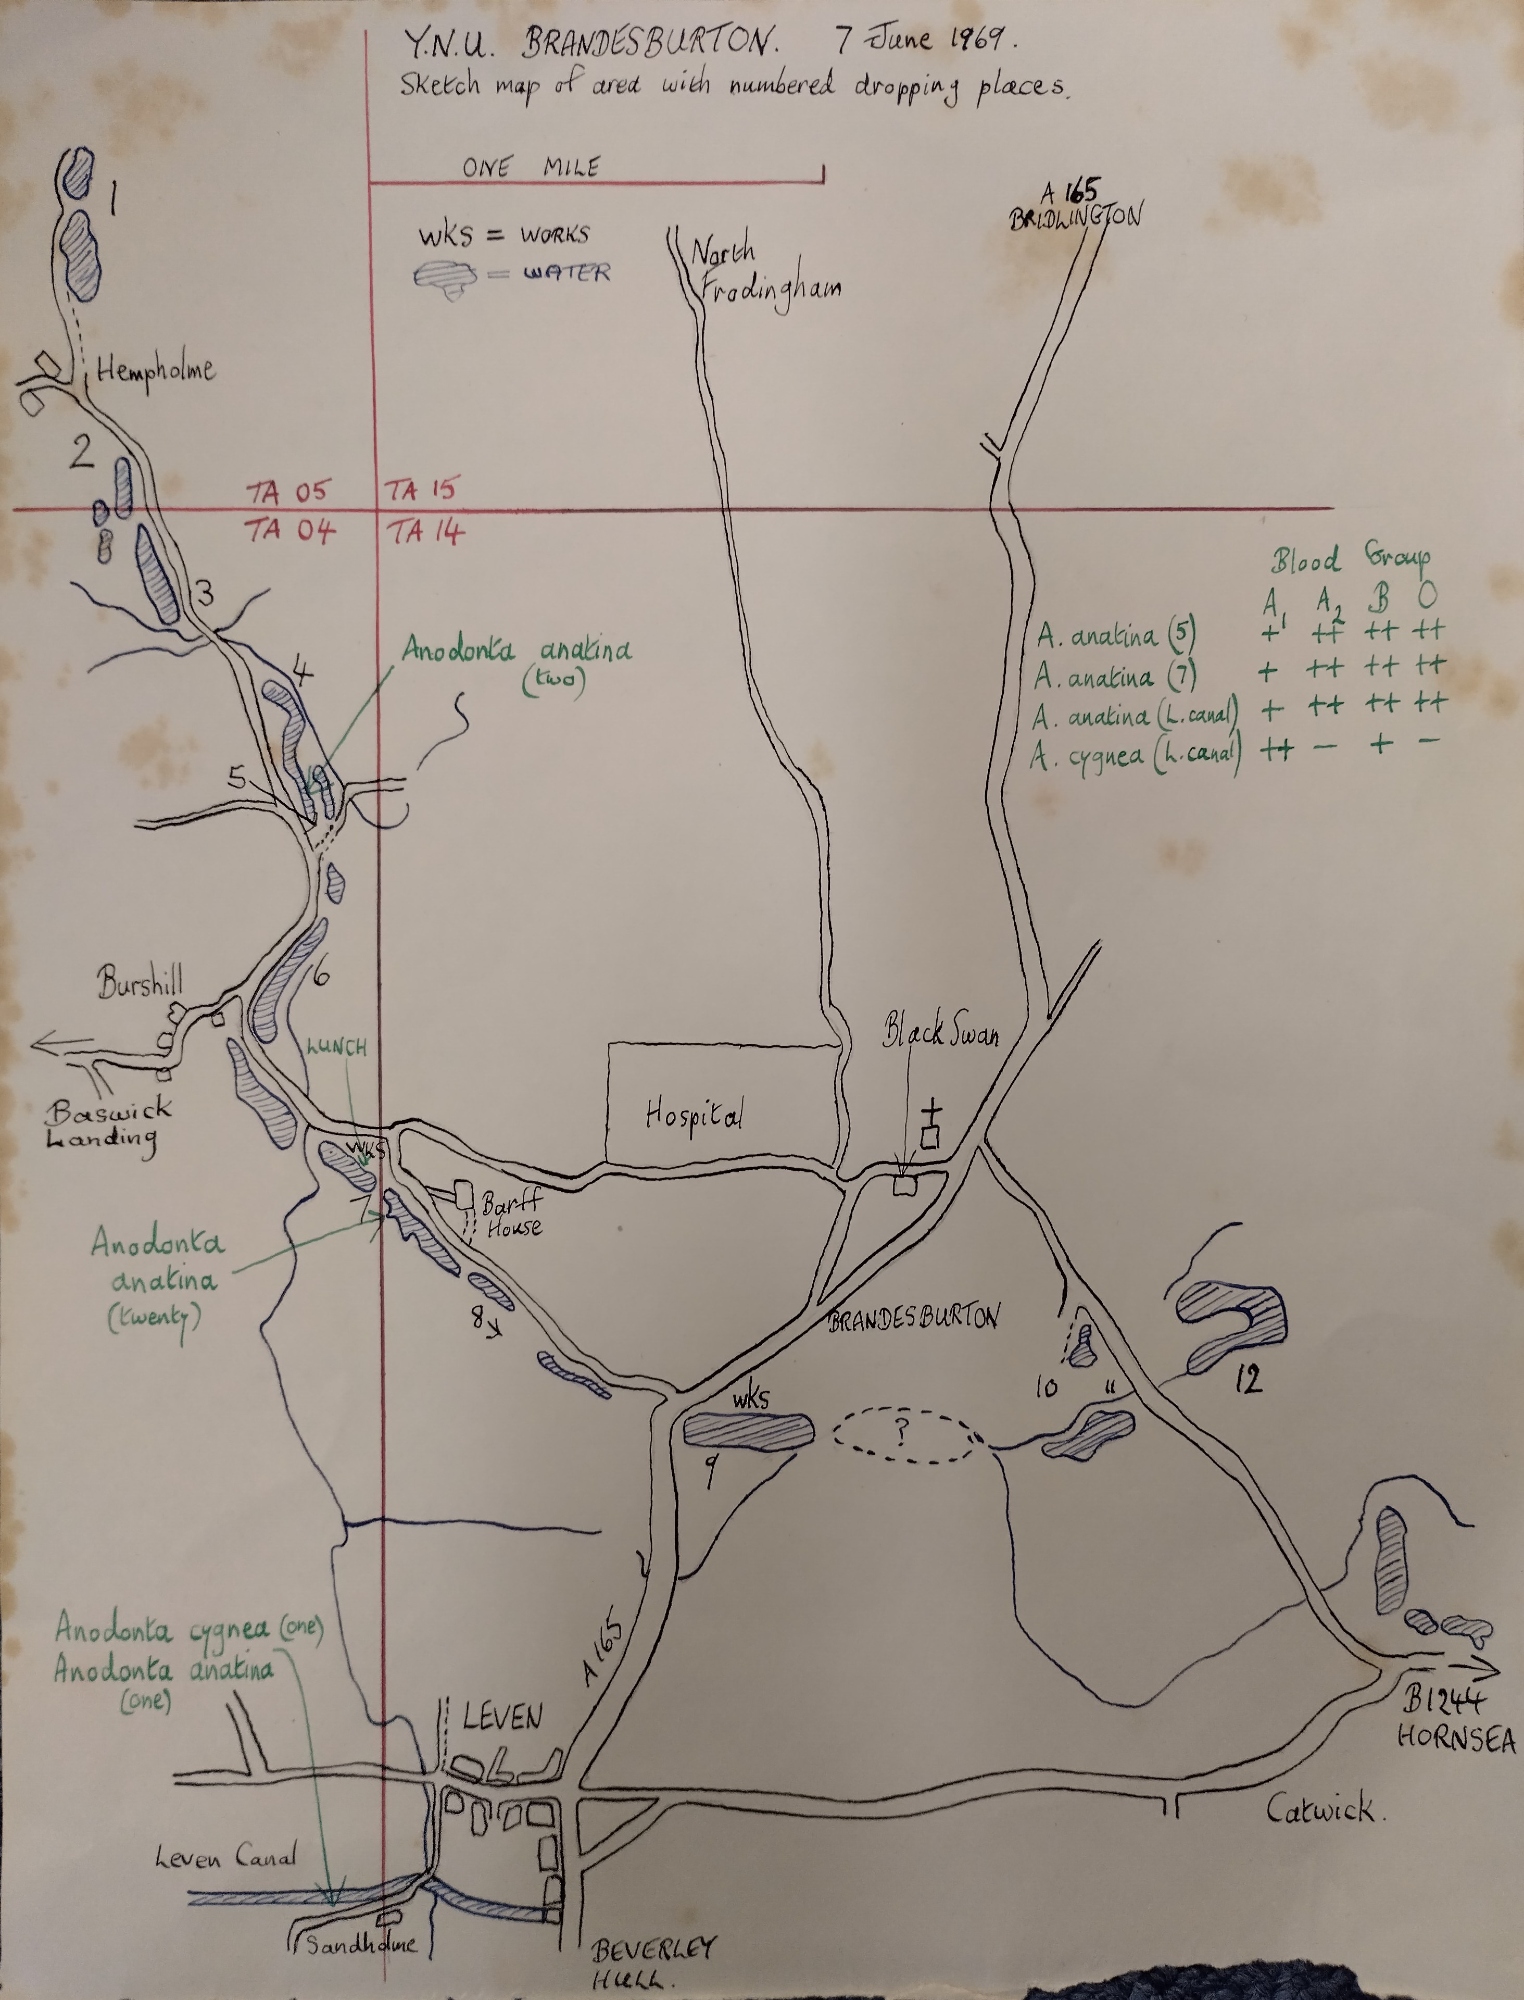 Y.N.U. BRANDESBURTON. 7 June 1969.
Sketch map of area with numbered dropping places.
ONE MILE
WKS = WORKS
= WATER
1
North
Frodingham
A 165
BRIDLINGTON
Hempholme
2
TA 05
TA 15
TA 04
TA 14
3
Blood Group
A1 A2 B O
A. anatina (5) + ++ ++ ++
A. anatina (7) + ++ ++ ++
A. anatina (L. canal) + ++ ++ ++
A. cygnea (L. canal) ++ - + -
Anodonta anatina
(two)
4
5
6
Burshill
LUNCH
Black Swan
Baswick
Landing
Hospital
WKS
7
Barff
House
Anodonta
anatina
(twenty)
8
BRANDESBURTON
10
11
12
WKS
?
9
A 165
Anodonta cygnea (one)
Anodonta anatina
(one)
LEVEN
B1244
HORNSEA
Catwick.
Leven Canal
Sandholme
BEVERLEY
HULL.